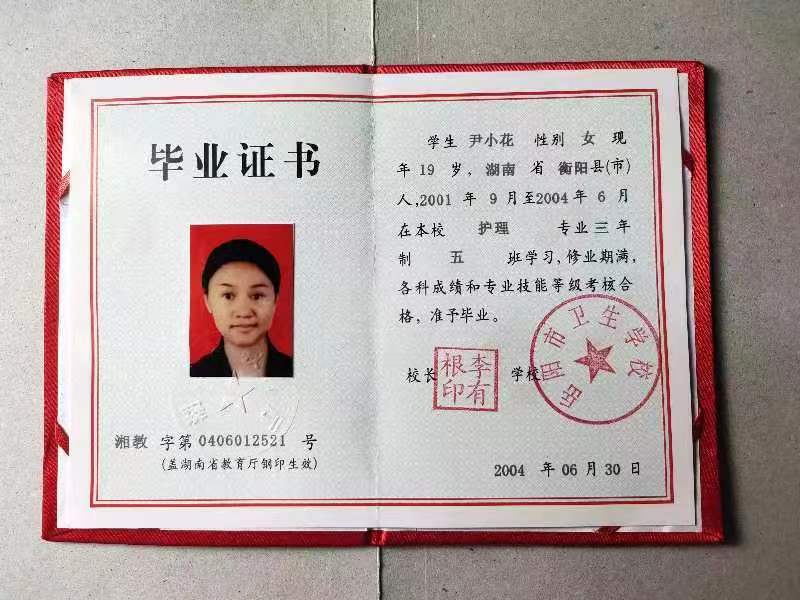 毕业证书
湘教 字第 0406012521 号
(盖湖南省教育厅钢印生效)
学生 尹小花 性别 女 现
年 19 岁, 湖南 省 衡阳 县(市)
人,2001 年 9 月至 2004 年 6 月
在本校 护理 专业 三 年
制 五 班学习,修业期满,
各科成绩和专业技能等级考核合
格,准予毕业。
校长 李有根印 学校
岳阳市卫生学校
2004 年 06 月 30 日